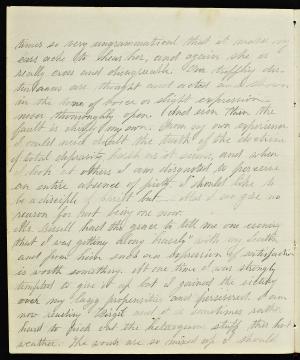 times so very ungrammatical that it makes my
ears ache to hear her, and again she is
really cross and disagreeable. Our
are thought and acted and shown
in the tone of voice or slight expression
never thoroughly open. And even then the
fault is chiefly my own. From my own experience
I could never doubt the truth of the doctrine
of total depravity, harsh as it seems, and when
I look at others I am disgusted to perceive
an entire absence of faith. I should like to
be a disciple of but alas I can give no
reason for not being one now.
Mr. Russell had the grace to tell me one evening
that I was getting along "bravely" with my Latin
and from him such an expression of satisfaction
is worth something. At one time I was strongly
tempted to give it up but I gained the victory
over my lazy propensities and persevered. I am
now reading Virgil and it is sometimes rather
hard to pick out the stuff this hot
weather. The words are so mixed up I should